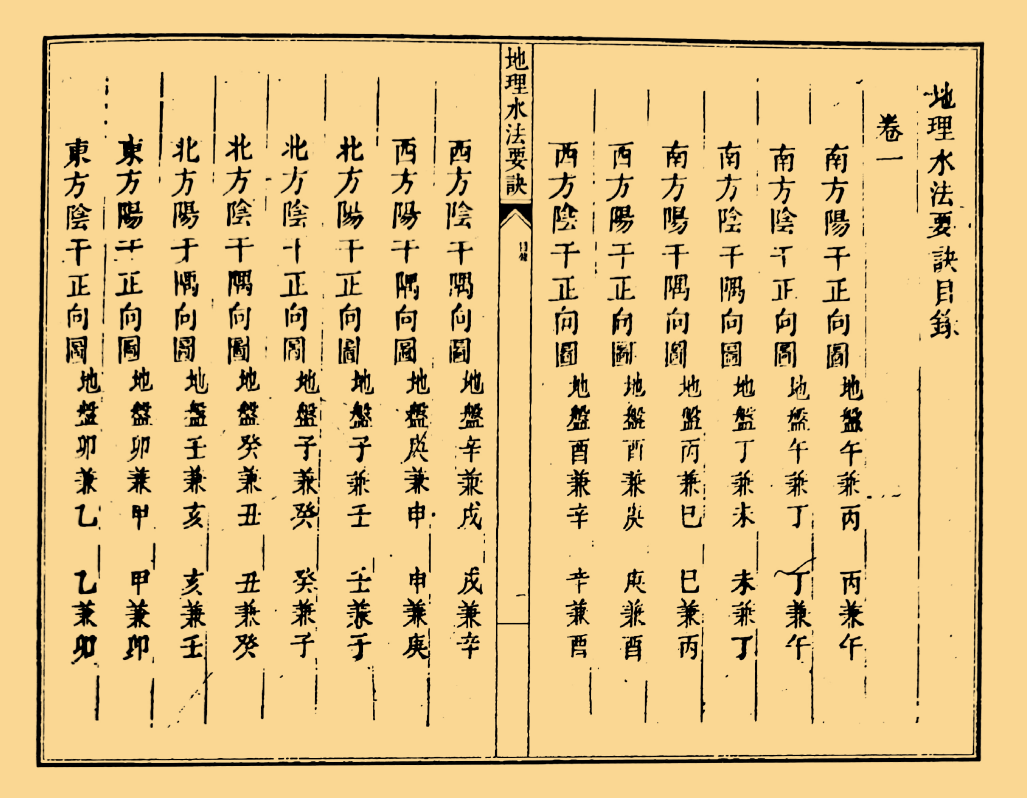 地理水法要訣目錄
卷一
南方陽干正向圖 地盤午兼丙 丙兼午
南方陰干正向圖 地盤午兼丁 丁兼午
南方陰干隅向圖 地盤丁兼未 未兼丁
南方陽干隅向圖 地盤丙兼巳 巳兼丙
西方陽干正向圖 地盤酉兼庚 庚兼酉
西方陰干正向圖 地盤酉兼辛 辛兼酉
地理水法要訣 目錄 一
西方陰干隅向圖 地盤辛兼戌 戌兼辛
西方陽干隅向圖 地盤庚兼申 申兼庚
北方陽干正向圖 地盤子兼壬 壬兼子
北方陰干正向圖 地盤子兼癸 癸兼子
北方陰干隅向圖 地盤癸兼丑 丑兼癸
北方陽干隅向圖 地盤壬兼亥 亥兼壬
東方陽干正向圖 地盤卯兼甲 甲兼卯
東方陰干正向圖 地盤卯兼乙 乙兼卯